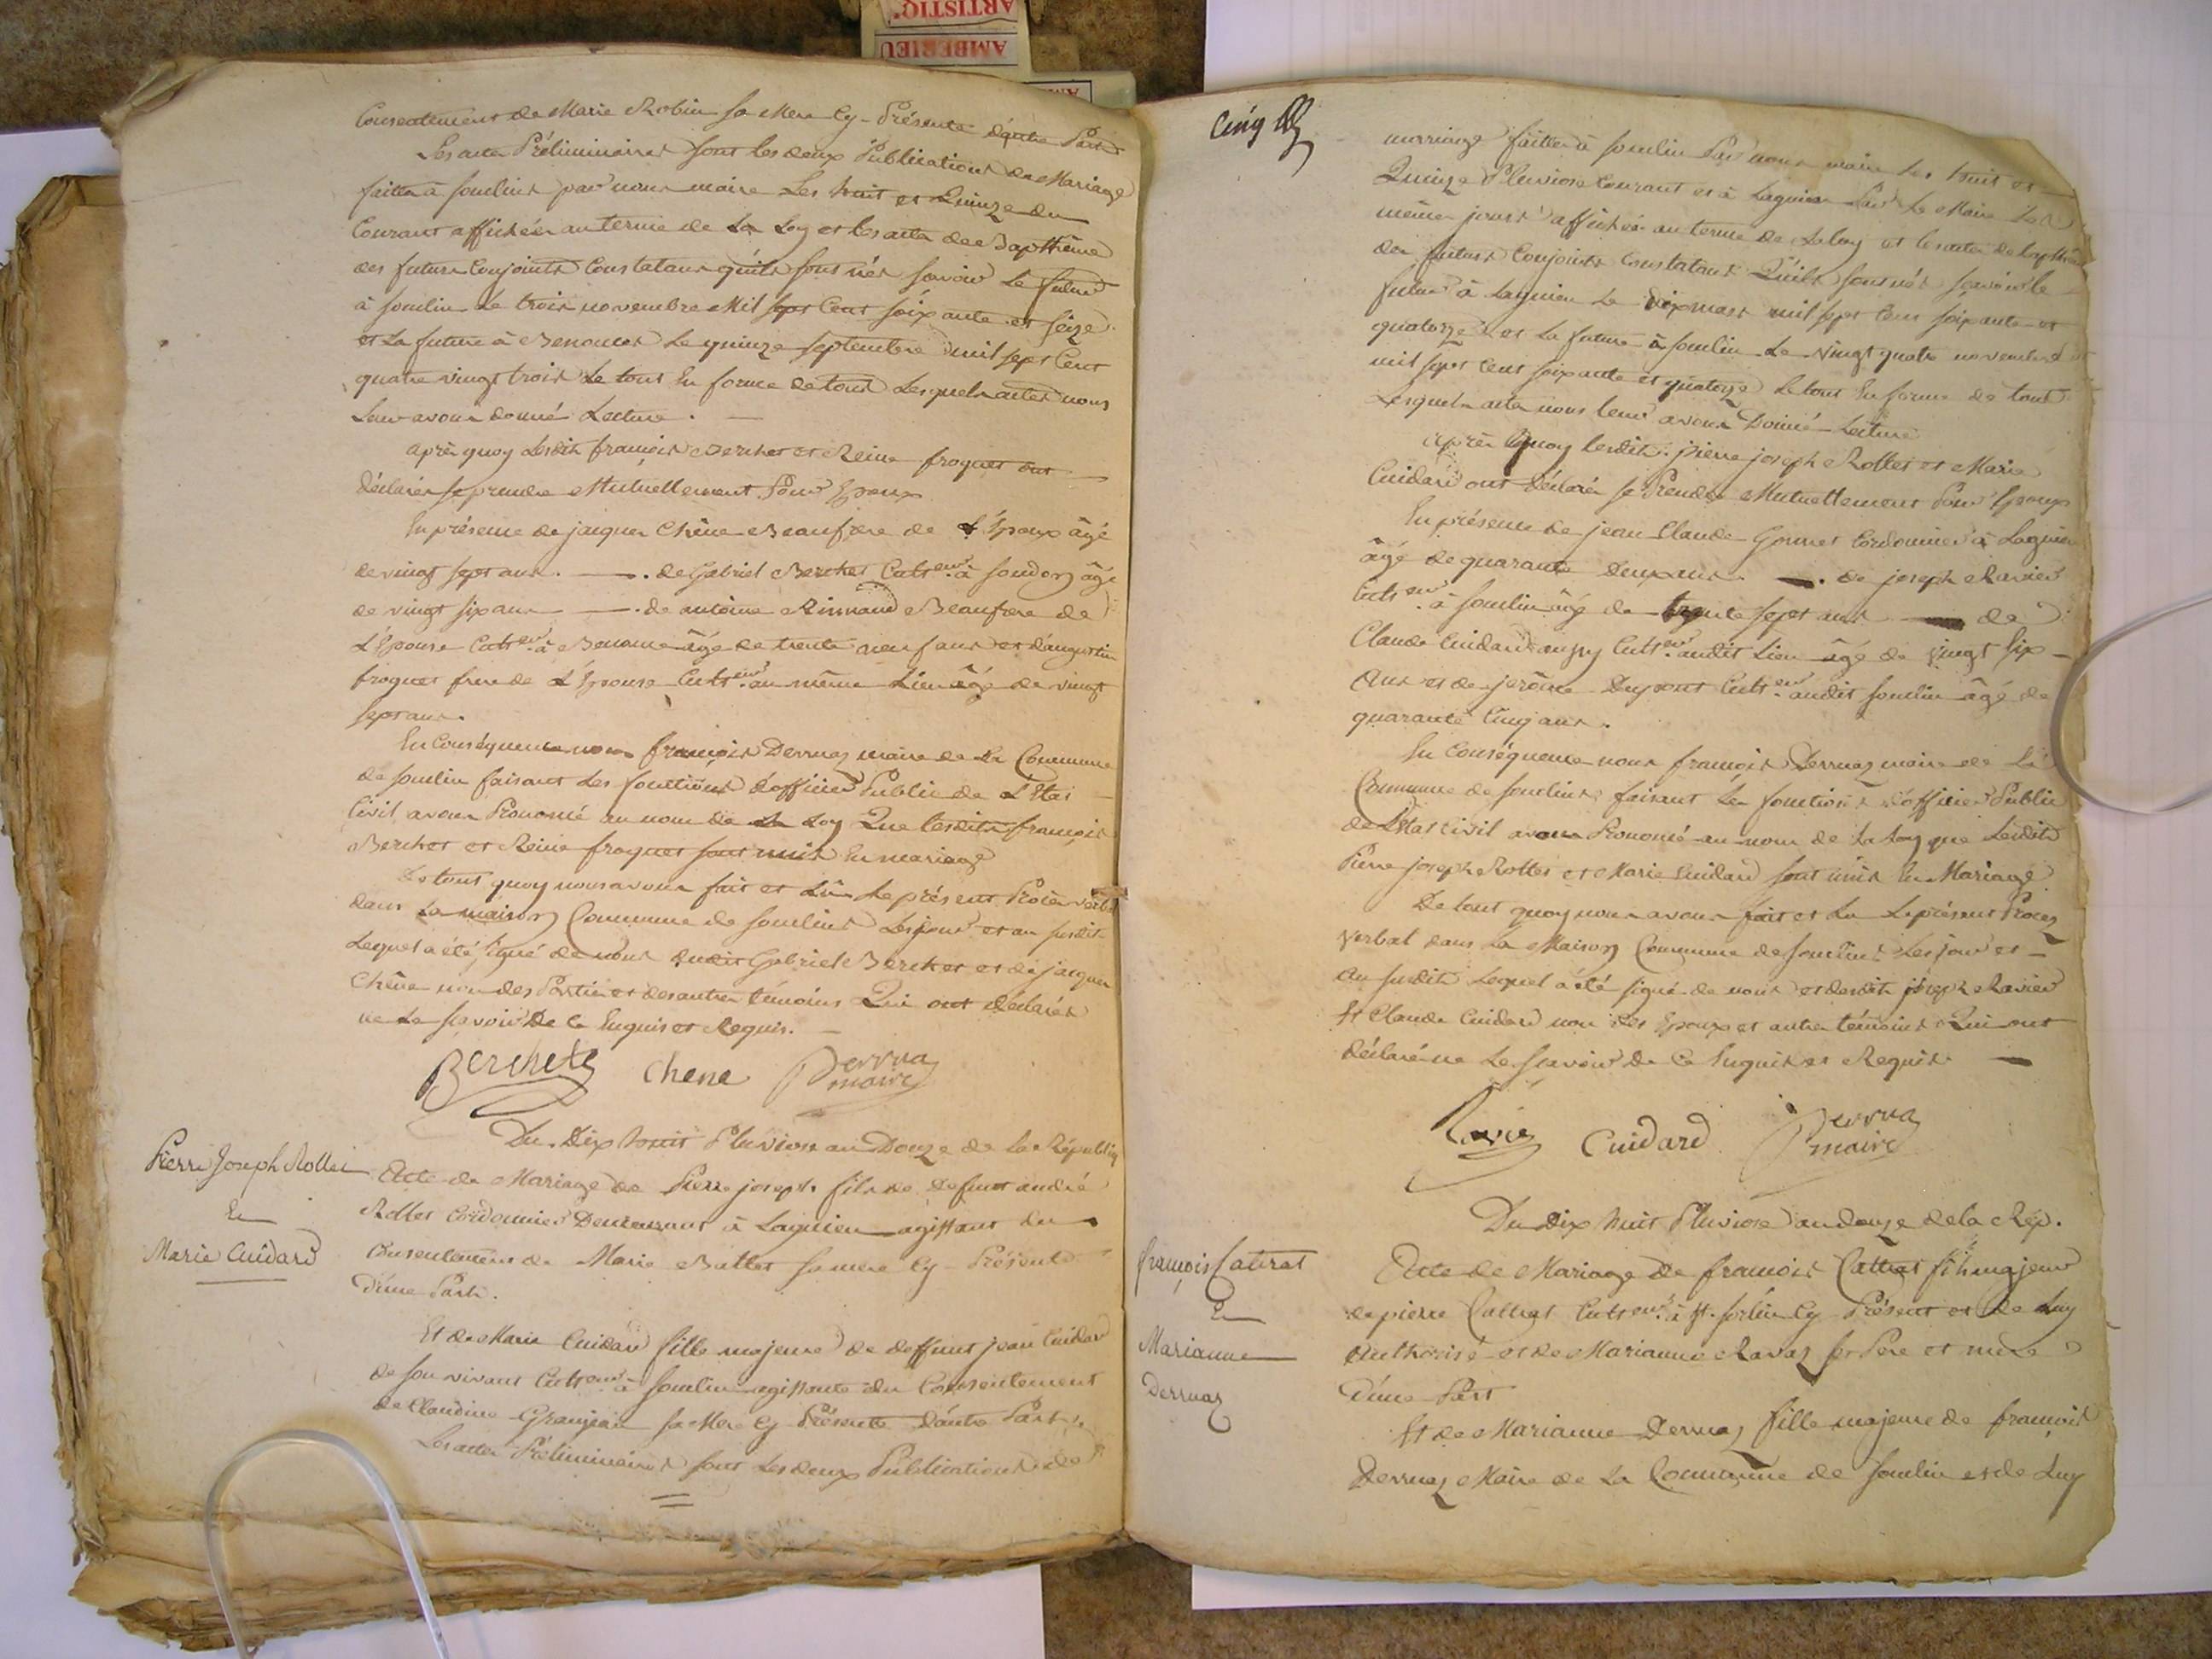 ARTISTIQ
AMBERIEU
Consentement de Marie Robin sa Mere Cy-Présente d'autre Part
Les actes Préliminaires sont les deux Publications de Mariage
faittes à souclin par nous maire Les huit et Quinze du
Courant affichées au terme de La Loy et les actes de Bapthême
des futurs Conjoints Constatans qu'ils sont nés savoir Le futur
à souclin Le trois novembre Mil sept Cent soixante et seize
et La future à Benonces Le quinze septembre mil sept Cent
quatre vingt trois Le tout En forme de tout Lesquels actes nous
Leur avons donné Lecture.
après quoy Lesdits françois Berchet et Reine froquet ont
déclarés se prendre Mutuellement Pour Epoux
En présence de jacques Chêne Beaufrere de L'Epoux âgé
de vingt sept ans. de Gabriel Berchet Cultr. à soudon âgé
de vingt six ans de antoine Beaufrere de
L'Epouse Cultr. à Benonce âgé de trente neuf ans et d'augustin
froquet frere de L'Epouse Cultr. au même Lieu âgé de vingt
sept ans.
En Conséquence nous françois Derruaz maire de La Commune
de souclin faisant Les fonctions d'officier Public de L'Etat
Civil avons Prononcé au nom de La Loy Que lesdits françois
Berchet et Reine froquet sont unis En mariage
De tout quoy nous avons fait et Lû Le présent Procès verbal
dans La maison Commune de souclin Les jour et an susdit
Lequel a été signé de nous dudit Gabriel Berchet et de jacques
Chêne non des Parties et des autres témoins Qui ont déclarés
ne Le savoir De ce Enquis et Requis.
Berchet Chene Derrua maire
Du Dix huit Pluviose an Douze de La République
Pierre Joseph Rollet
Et
Marie Cuidard
Acte de Mariage de Pierre joseph fils de defunt andré
Rollet Cordonnier Demeurant à Lagnieu agissant du
Consentement de Marie Ballet sa mere Cy-Présente
D'une Part.
Et de Marie Cuidard fille majeure de deffunt jean Cuidard
de son vivant Cultr. à souclin agissante du Consentement
de Claudine Granjean sa Mere Cy Présente D'autre Part.
Les actes Préliminaires sont Les deux Publications de
Cinq
marriage faittes à souclin Par nous maire Les huit et
Quinze Pluviose Courant et à Lagnieu Par Le Maire Les
mêmes jours affichées au terme de La loy et les actes de bapthême
des futurs Conjoints Constatans Qu'ils sont nés scavoir le
futur à Lagnieu Le Dix mars mil sept Cens soixante et
quatorze et La future à souclin Le vingt quatre novembre
mil sept Cens soixante et quatorze Le tout En forme de tout
Lesquels actes nous leur avons Donné Lecture
après Quoy lesdits pierre joseph Rollet et Marie
Cuidard ont Déclaré se Prendre Mutuellement Pour Epoux
En présence de jean Claude Gonnet Cordonnier à Lagnieu
âgé de quarante Deux ans de joseph Ravier
Cultr. à souclin âgé de trente sept ans de
Claude Cuidard aussy Cultr. audit Lieu âgé de vingt six
Ans et de jerôme Dupont Cultr. audit souclin âgé de
quarante Cinq ans.
En Conséquence nous françois Derruaz maire de La
Commune de souclin faisant Les fonctions d'officier Public
de L'Etat Civil avons Prononcé au nom de La Loy que Lesdits
Pierre joseph Rollet et Marie Cuidard sont unis En Mariage
De tout quoy nous avons fait et Lu Le présent Procez
verbal dans La Maison Commune de souclin Les jour et
an susdit Lequel à été signé de nous et desdits joseph Ravier
Et Claude Cuidard non des Epoux et autres témoins Qui ont
déclaré ne Le scavoir De Ce Enquis et Requis
Ravier Cuidard Derrua maire
Du Dix huit Pluviose an douze de la Rép.
françois Cattrat
Et
Marianne
Derruaz
Acte de Mariage de françois Cattrat fils majeur
de pierre Cattrat Cultr. à St. sorlin Cy Présent et de Luy
Authorisé et de Marianne Ravaz ses Pere et mere
D'une Part
Et de Marianne Derruaz fille majeure de françois
Derruaz Maire de La Commune de souclin et de Luy